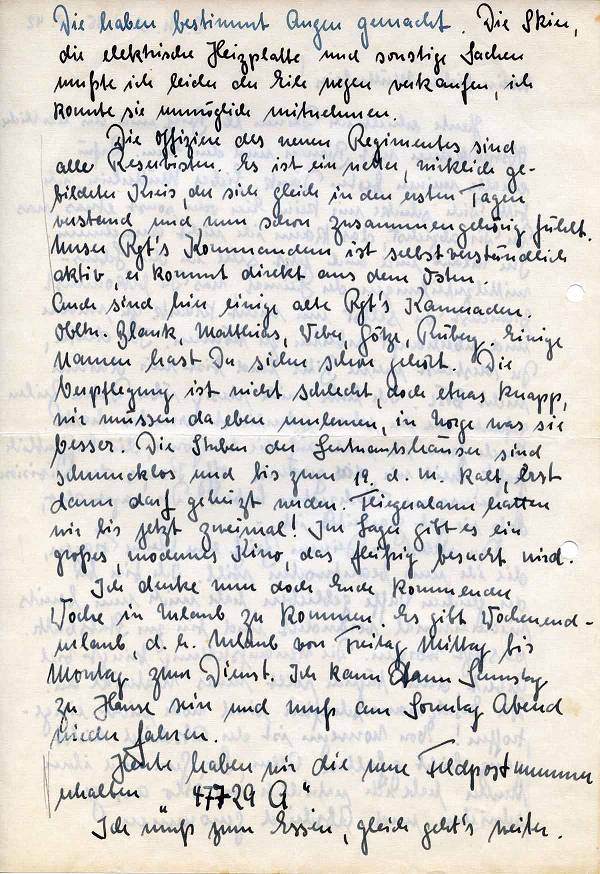 Die haben bestimmt Augen gemacht. Die Skier,
die elektrische Heizplatte und sonstige Sachen
mußte ich leider der Eile wegen verkaufen, ich
konnte sie unmöglich mitnehmen.
Die Offiziere des neuen Regimentes sind
alle Reservisten. Es ist ein netter, wirklich ge-
bildeter Kreis, der sich gleich in den ersten Tagen
verstand und nun schon zusammengehörig fühlt.
Unser Rgt's Kommandeur ist selbstverständlich
aktiv, er kommt direkt aus dem Osten.
Auch sind hier einige alte Rgt's Kameraden.
Obltn. Blank, Matthias, Weber, Götze, Ruberg. Einige
Namen hast Du sicher schon gehört. Die
Verpflegung ist nicht schlecht, doch etwas knapp,
wir müssen da eben umlernen, in Norge war sie
besser. Die Stuben der Leutnantshäuser sind
schmucklos und bis zum 19. d. M. kalt, erst
dann darf geheizt werden. Fliegeralarm hatten
wir bis jetzt zweimal! Im Lager gibt es ein
großes, modernes Kino, das fleißig besucht wird.
Ich denke nun doch Ende kommender
Woche in Urlaub zu kommen. Es gibt Wochenend-
urlaub, d. h. Urlaub von Freitag Mittag bis
Montag zum Dienst. Ich kann dann Samstag
zu Hause sein und muß am Sonntag Abend
wieder fahren.
Heute haben wir die neue Feldpostnummer
erhalten 47729 A"
Ich muß zum Essen, gleich geht's weiter.